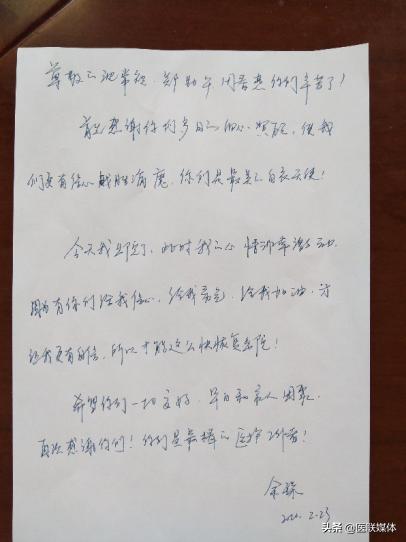 尊敬的池常径、郑助午、闭春燕你们辛苦了!
首先感谢你们多日的细心照顾,使我
们更有信心战胜病魔,你们是最美的白衣天使!
今天我出院了,此时我的心情非常激动
因为有你们给我信心,给我鼓励,给我加油,才
让我更有自信,所以才能这么快恢复出院!
希望你们一切安好,早日和家人团聚.
再次感谢你们!你们是最棒的医护工作者!
2020.2.23
头条@医联媒体